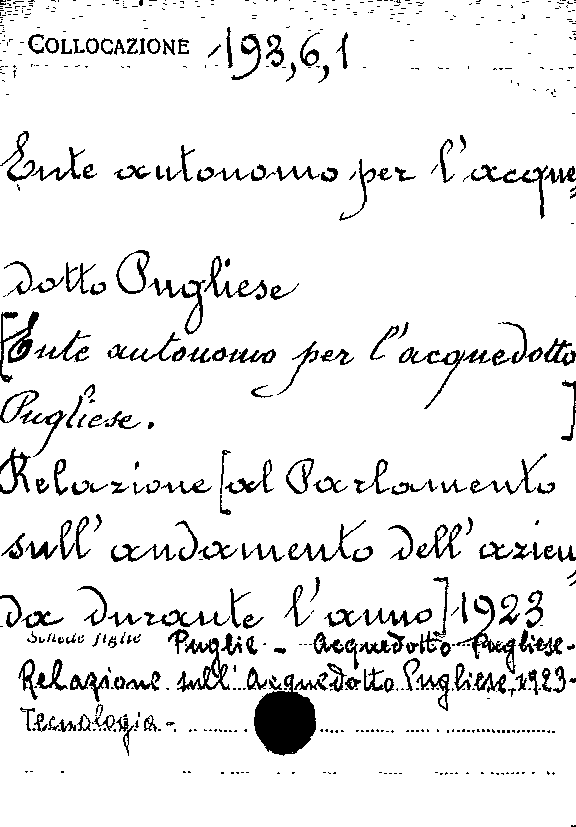 COLLOCAZIONE 193,6,1
Ente autonomo per l'acque=
dotto Pugliese
[Ente autonomo per l'acquedotto
Pugliese. ]
Relazione [al Parlamento
sull'andamento dell'azien=
da durante l'anno] 1923
Schede figlie Puglie - Acquedotto Pugliese -
Relazione sull'Acquedotto Pugliese, 1923 -
Tecnologia -